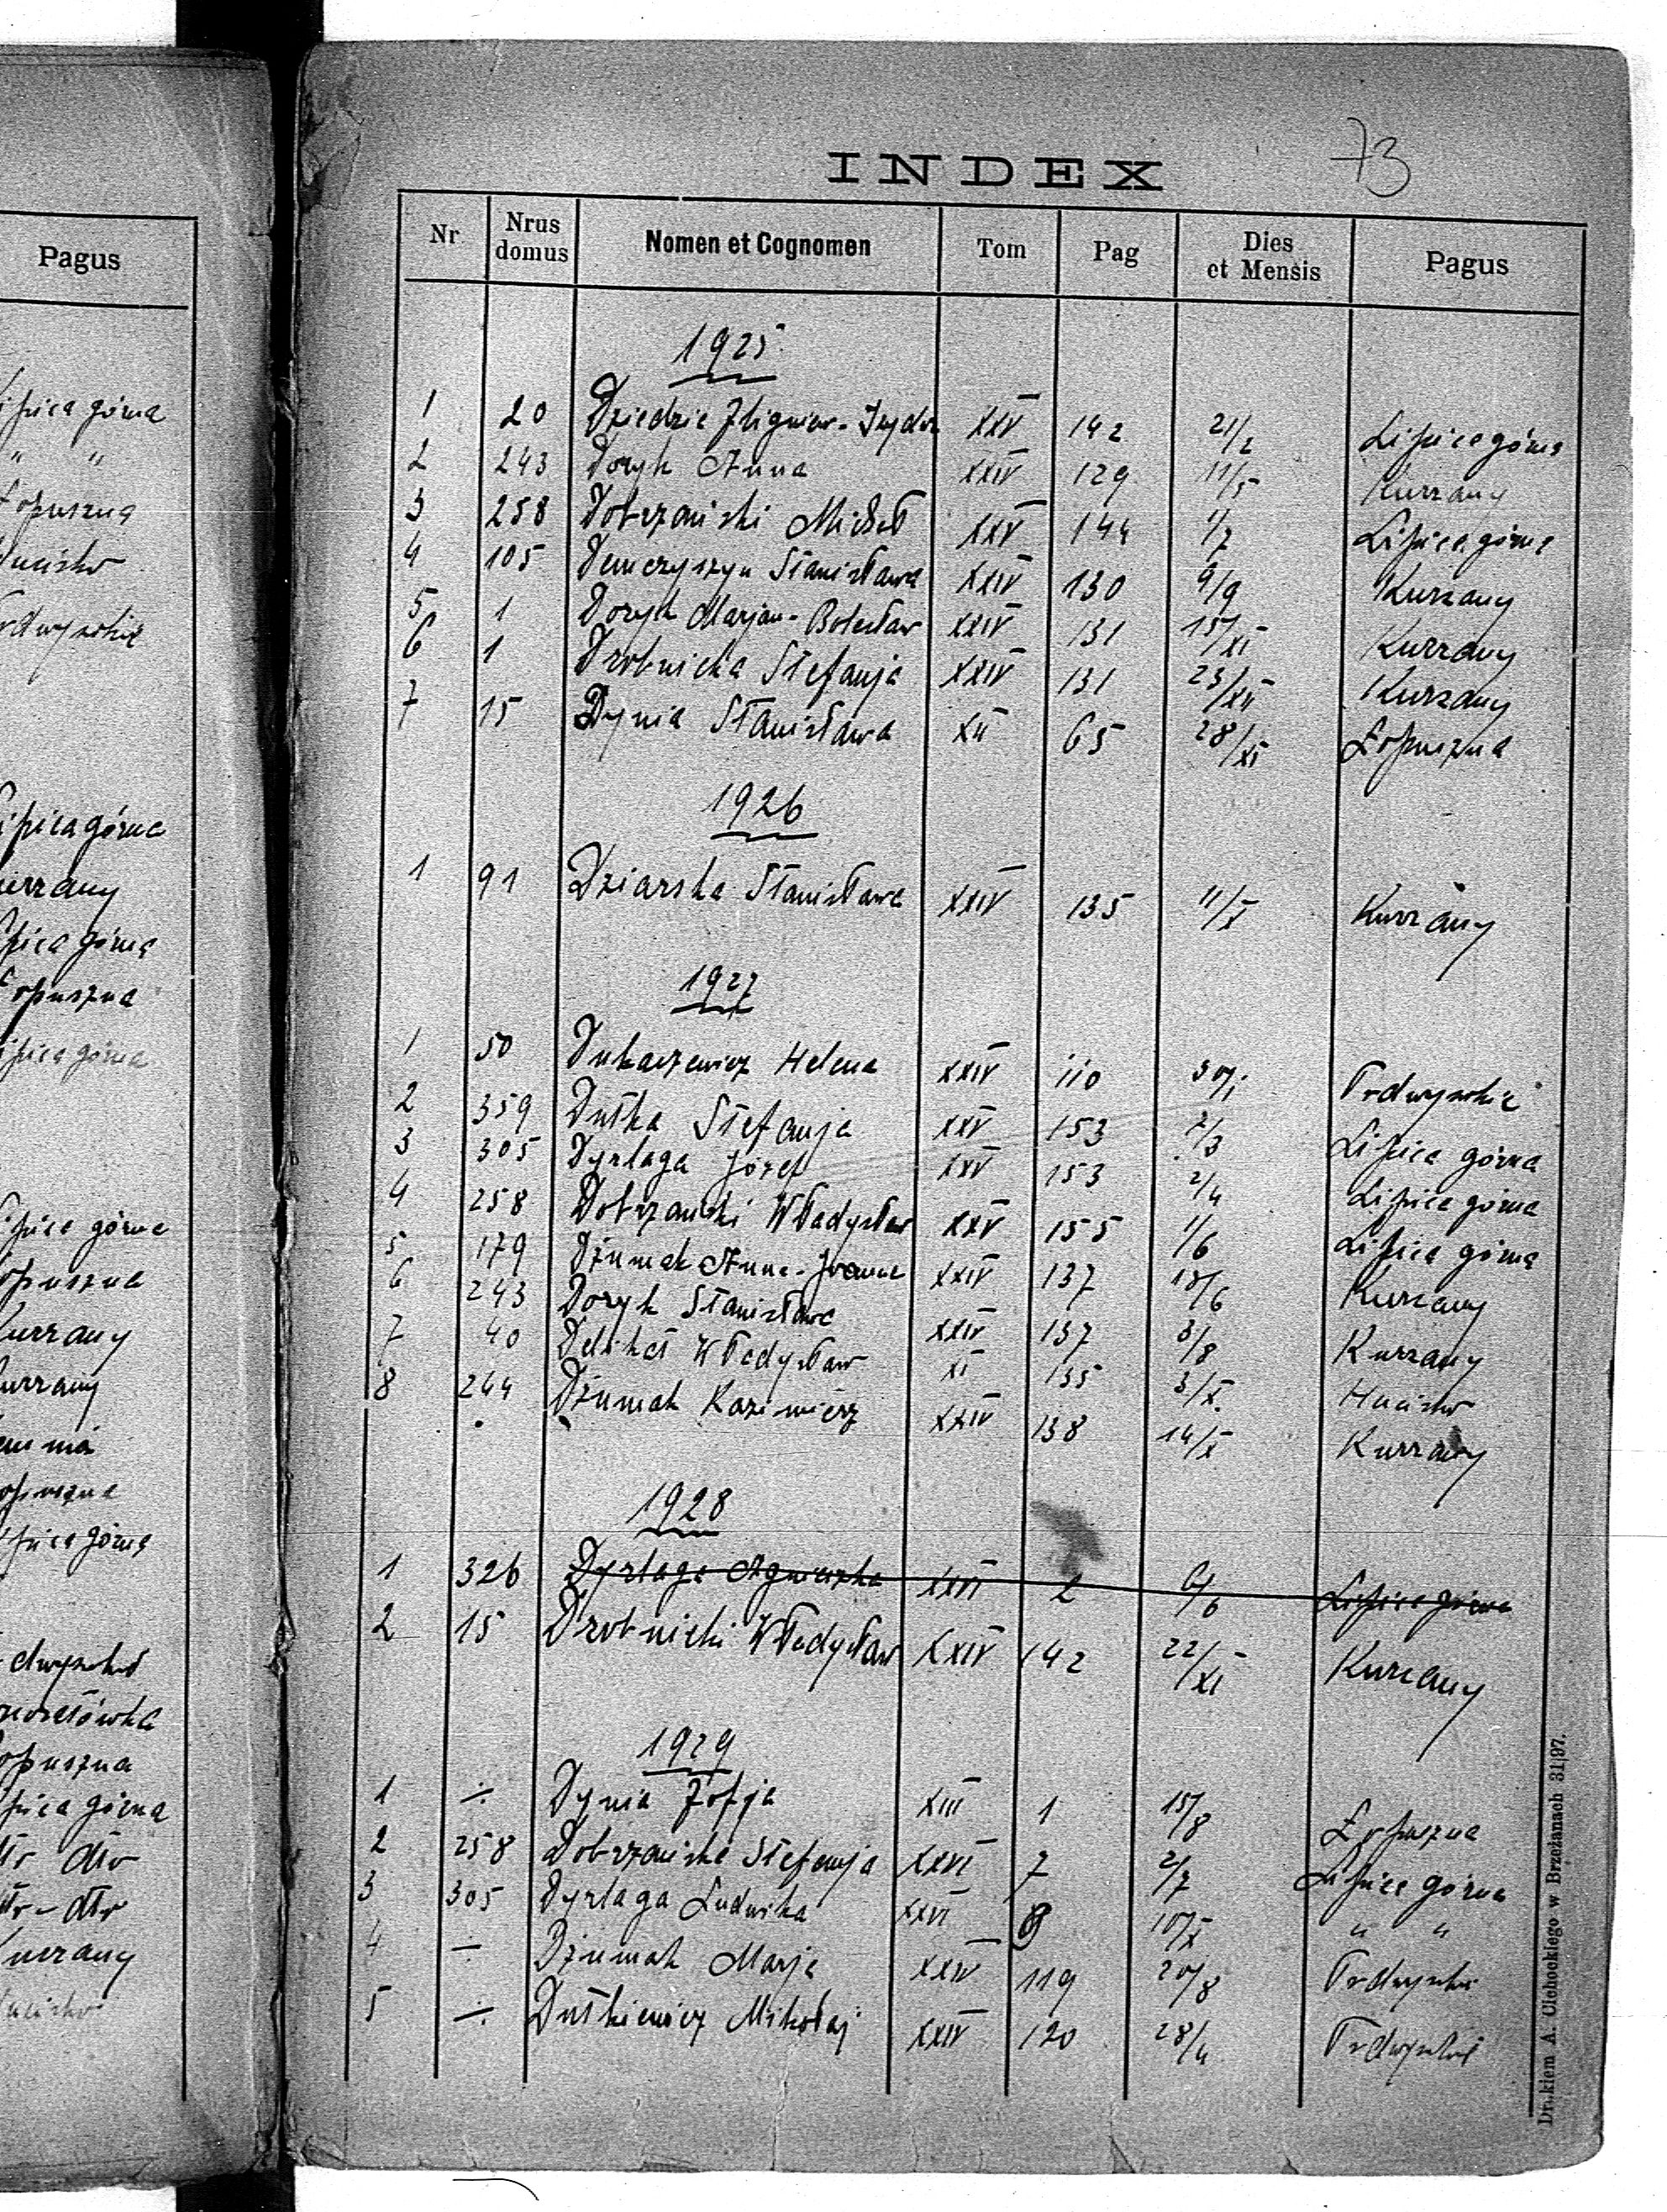 Pagus
górna
" "
górna
górna
górna
Kurzany
dto
dto - dto
Kurzany
73
INDEX
Nr Nrus domus Nomen et Cognomen Tom Pag Dies et Mensis Pagus
1925
1 20 Dziedzic Zbigniew-Izydor XXV 142 21/2 Lipica górna
2 243 Doryk Anna XXIV 129 11/5 Kurzany
3 258 Dobrzański Michał XXV 144 1/7 Lipica górna
4 105 Demczyszyn Stanisława XXIV 130 9/9 Kurzany
5 1 Doryk Marjan-Bolesław XXIV 131 15/XI Kurzany
6 1 Drobnicka Stefanja XXIV 131 23/XII Kurzany
7 15 Dynia Stanisława XII 65 28/XI Łopuszna
1926
1 91 Dziarska Stanisława XXIV 135 11/X Kurzany
1927
1 50 Dukaczewicz Helena XXIV 110 30/1 Podwysokie
2 359 Dutka Stefanja XXV 153 2/3 Lipica górna
3 305 Dyrlaga Józef XXV 153 2/4 Lipica górna
4 258 Dobrzański Władysław XXV 155 1/6 Lipica górna
5 179 Dziumak Anna-Joanna XXIV 137 18/6 Kurzany
6 243 Doryk Stanisława XXIV 137 3/8 Kurzany
7 40 Delikat Władysław XI 135 3/X Hucisko
8 244 Dziumak Kazimierz XXIV 138 14/X Kurzany
1928
1 326 Dyrlaga Agnieszka XXVI 2 6/6 Lipica górna
2 15 Drobnicki Władysław XXIV 142 22/XI Kurzany
1929
1 ÷ Dynia Zofja XIII 1 15/8 Łopuszna
2 258 Dobrzańska Stefanja XXVI 7 2/7 Lipica górna
3 305 Dyrlaga Ludwika XXVI 8 10/X " "
4 ÷ Dziumak Marja XXIV 119 20/8 Podwysokie
5 ÷ Dutkiewicz Mikołaj XXIV 120 28/4 Podwysokie
Drukiem A. Cichockiego w Brzeżanach 31|97.